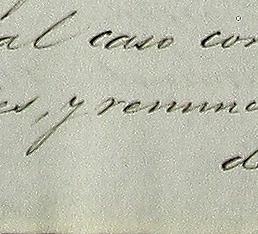 al caso con
es, y renunc
d